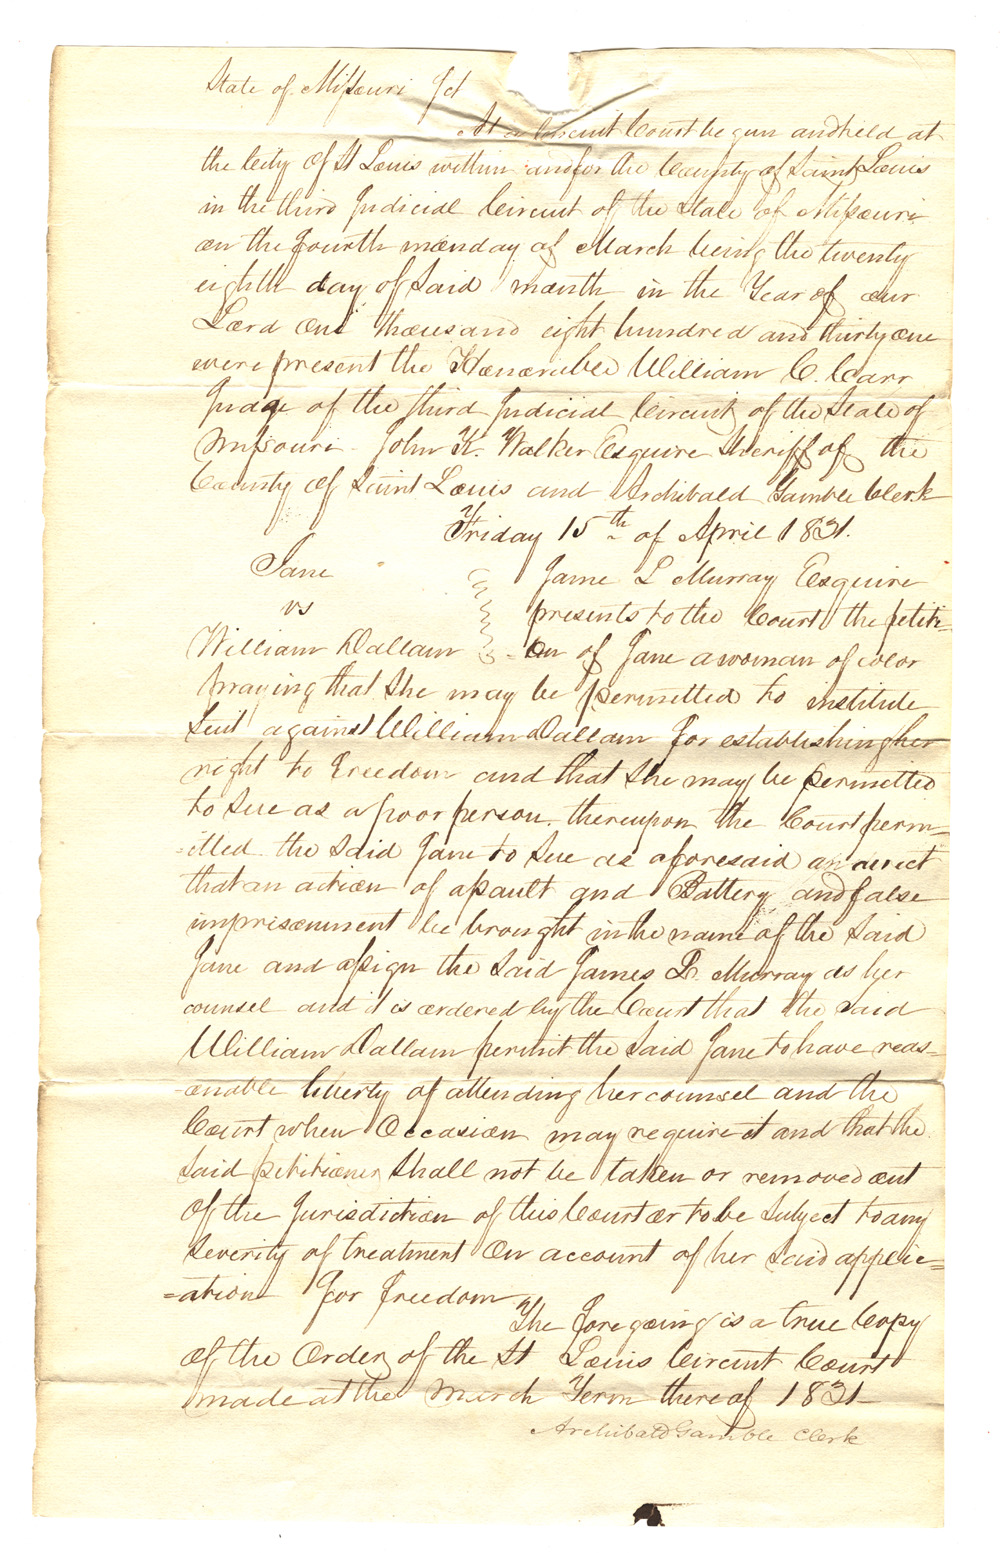 State of Missouri Sct
At a Circuit Court begun and held at
the City of St Louis within and for the County of Saint Louis
in the third Judicial Circuit of the State of Missouri
on the fourth monday of March being the twenty
eighth day of Said month in the Year of our
Lord One thousand eight hundred and thirty one
were present the Honorable William C. Carr
Judge of the third Judicial Circuit of the State of
Missouri John K. Walker Esquire Sheriff of the
County of Saint Louis and Archibald Gamble Clerk
Friday 15th of April 1831.
Jane
vs
William Dallam
Jame L Murray Esquire
presents to the Court the petiti=
=on of Jane a woman of color
praying that she may be permitted to institute
Suit against William Dallam for establishing her
right to Freedom and that she may be permitted
to Sue as a poor person. thereupon the Court perm=
=itted the said Jane to Sue as aforesaid an direct
that an action of assault and Battery and false
imprisonment be brought in the name of the Said
Jane and assign the Said James L. Murray as her
counsel and it is ordered by the Court that the said
William Dallam permit the Said Jane to have reas=
=onable liberty of attending her counsel and the
Court when Occasion may require it and that the
Said petitioner Shall not be taken or removed out
Of the Jurisdiction of this Court or to be Subject to any
Severity of treatment On account of her Said applic=
=ation for freedom
The foregoing is a true Copy
Of the Order of the St Louis Circuit Court
made at the March Term thereof 1831
Archibald Gamble Clerk